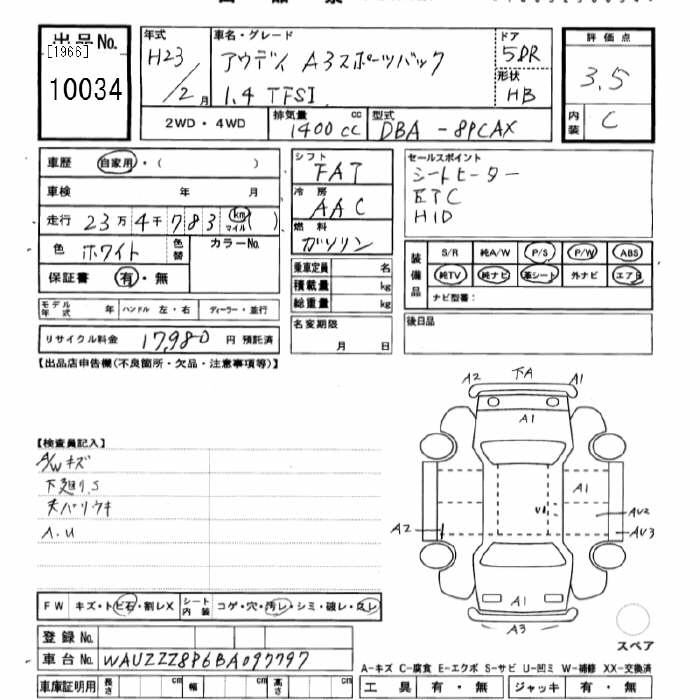 出品No. 年式 車名・グレード ドア 評価点
[1966] H23 アウディ A3スポーツバック 5DR
10034 / 2月 1.4 TFSI 形状 HB 3.5
2WD・4WD 排気量 1400cc cc 型式 DBA-8PCAX 内装 C
車歴 自家用・( ) シフト FAT セールスポイント
車検 年 月 冷房 AAC シートヒーター
走行 23万4千783 km マイル ( ) 燃料 ガソリン ETC
色 ホワイト 色替 カラーNo. HID
保証書 有・無 乗車定員 名 装備品 S/R 純A/W P/S P/W ABS
モデル年式 年 ハンドル 左・右 ディーラー・並行 積載量 kg 純TV 純ナビ 革シート 外ナビ エアB
総重量 kg ナビ型番:
リサイクル料金 17,980 円 預託済 名変期限 月 日 後日品
【出品店申告欄(不良箇所・欠品・注意事項等)】
A2 下A A1
A1
【検査員記入】
A/Wキズ
下廻りS
天バリウキ
A1
A.U
U1 AU2
A2 AU3
FW キズ・トビ石・割レX シート内装 コゲ・穴・汚レ・シミ・破レ・スレ
A1
A3
スペア
登録No.
車台No. WAUZZZ8P6BA097797
A-キズ C-腐食 E-エクボ S-サビ U-凹ミ W-補修 XX-交換済
車庫証明用 長さ cm 幅 cm 高さ cm 工具 有・無 ジャッキ 有・無